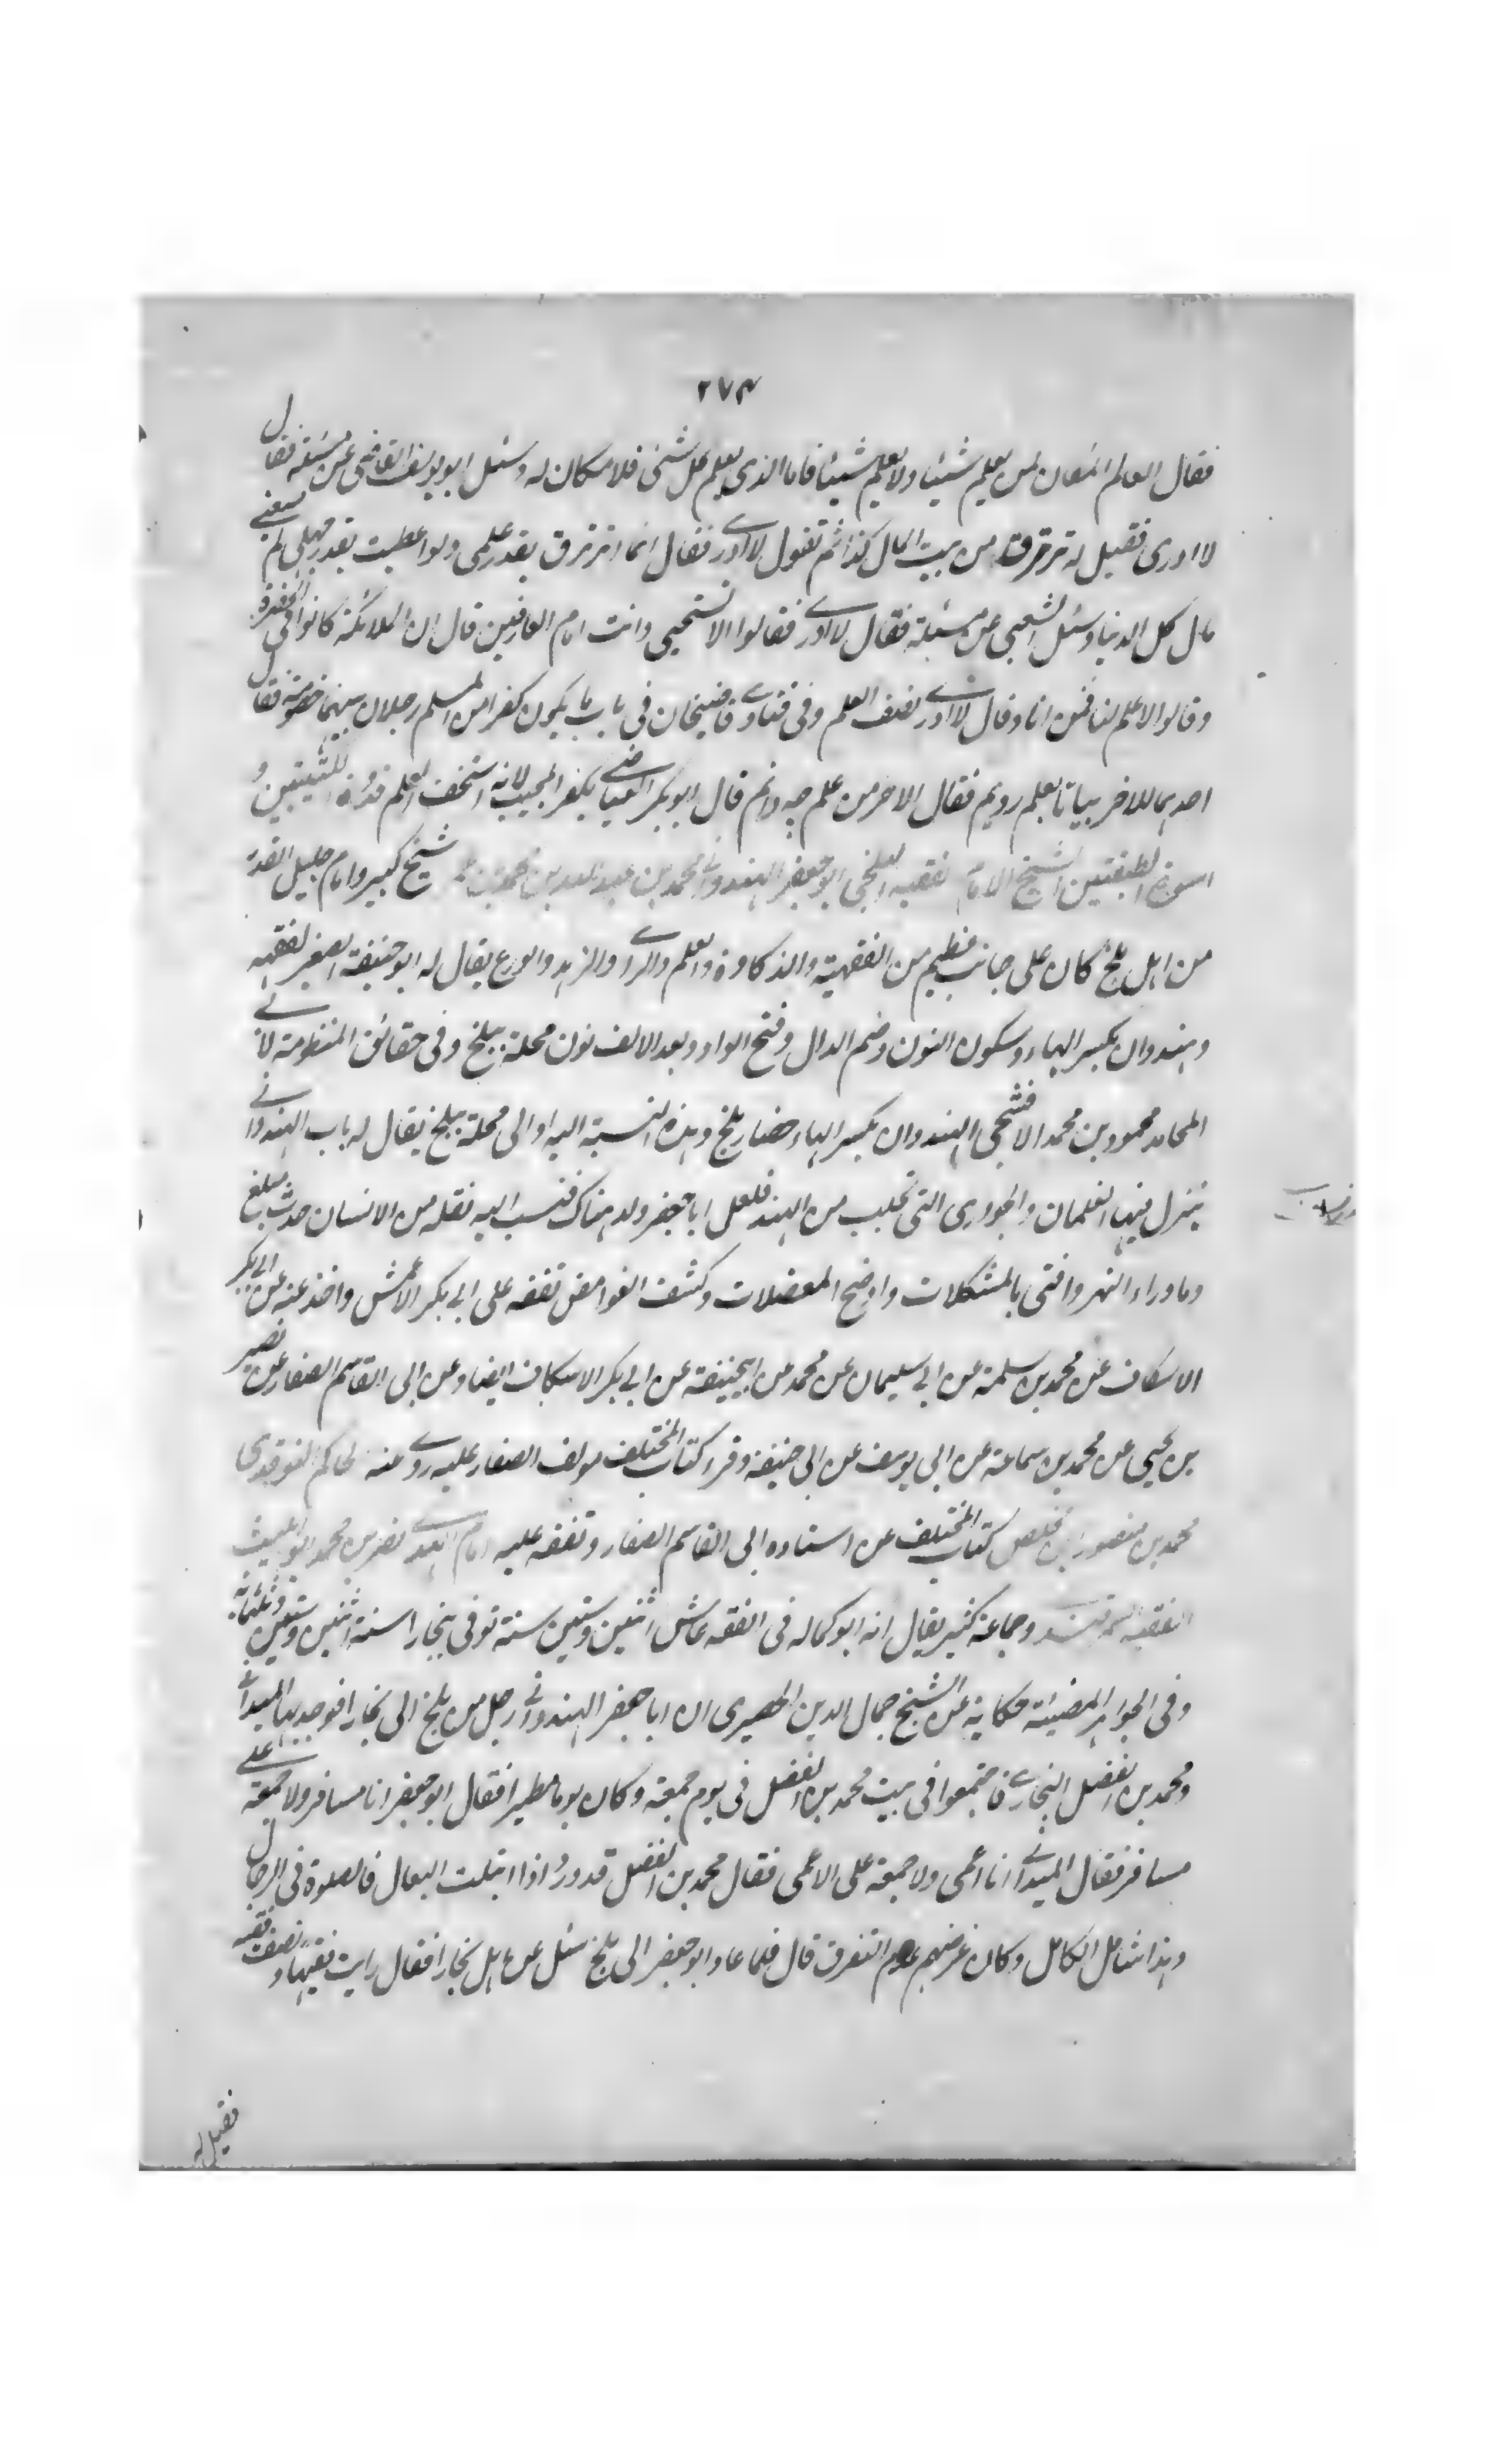 ٢٧٤
فقال العالم المكان لمن يعلم شيئا ولا يعلم شيئا فاما الذى يعلم كل شئ فلا مكان له وسئل ابو يوسف القاضى عن مسئلة فقال
لا ادرى فقيل له ترتزق من بيت المال كذا ثم تقول لا ادرى فقال انما ارتزق بقدر علمى ولو اعطيت بقدر جهلى لم يسعنى
مال كل الدنيا وسئل الشعبى عن مسئلة فقال لا ادرى فقالوا الا تستحيى وانت امام العارفين قال ان الملائكة كانوا فى الحضرة
وقالوا لا علم لنا فمن انا وقال لا ادرى نصف العلم وفى فتاوى قاضيخان فى باب ما يكون كفرا من المسلم رجلان بينهما خصومة فقال
احدهما للاخر بياتا بعلم رويم فقال الاخر من علم چه دانم قال ابو بكر العياضى يكفر المجيب لانه استخف العلم قدوة للشيخين و
اسوة الطبقتين الشيخ الامام الفقيه البلخى ابو جعفر الهندوانى محمد بن عبد الله بن محمد بن عمر شيخ كبير وامام جليل القدر
من اهل بلخ كان على جانب عظيم من الفقهية والذكاوة والعلم والراى والزهد والورع يقال له ابو حنيفة الصغير لفقهه
وهندوان بكسر الهاء وسكون النون وضم الدال وفتح الواو وبعد الالف نون محلة ببلخ وفى حقائق المنظومة لابى
المحامد محمود بن محمد الافشنجى الهندوان بكسر الهاء حصار بلخ وهذه النسبة اليه او الى محلة ببلخ يقال له باب الهندوانى
ينزل فيها الغلمان والجوارى التى تجلب من الهند فلعل ابا جعفر ولد هناك فنسب اليه نقله من الانسان حدث ببلغ
وماوراء النهر وافتى بالمشكلات واوضح المعضلات وكشف الغوامض تفقه على ابى بكر الاعمش واخذ عنه عن ابى بكر
الاسكاف عن محمد بن سلمة عن ابى سليمان عن محمد عن ابيحنيفة عن ابى بكر الاسكاف ايضا وعن ابى القاسم الصفار عن نصير
بن يحيى عن محمد بن سماعة عن ابى يوسف عن ابى حنيفة وقرا كتاب المختلف مولف الصفار عليه روى عنه الحاكم النوقدى
محمد بن منصور بن مخلص كتاب المختلف عن استاده ابى القاسم الصفار وتفقه عليه امام الهدى نصر بن محمد ابو الليث
الفقيه السمرقندى وجماعة كثير يقال انه ابو كماله فى الفقه عاش اثنتين وستين سنة توفى ببخارا سنة اثنتين وستين وثلثمائة
وفى الجواهر المضيئة حكاية عن الشيخ جمال الدين الحصيرى ان ابا جعفر الهندوانى رحل من بلخ الى بخارا فوجد بها الميدانى
ومحمد بن الفضل البخارى فاجتمعوا فى بيت محمد بن الفضل فى يوم جمعة وكان يوما مطيرا فقال ابو جعفر انا مسافر ولا جمعة على
مسافر فقال الميدانى انا اعمى ولا جمعة على الاعمى فقال محمد بن الفضل قد ورد اذا ابتلت النعال فالصلوة فى الرحال
وهذا شامل الكامل وكان غرضهم عدم التفرق قال فلما عاد ابو جعفر الى بلخ سئل عن اهل بخارا فقال رايت فقيها ونصف فقيه
فقيل له